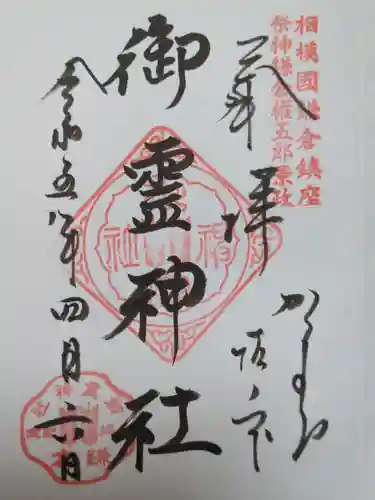 相模國鎌倉鎮座
祭神鎌倉権五郎景政
奉拝
かまくら
坂ノ下
御霊神社
令和五年四月六日